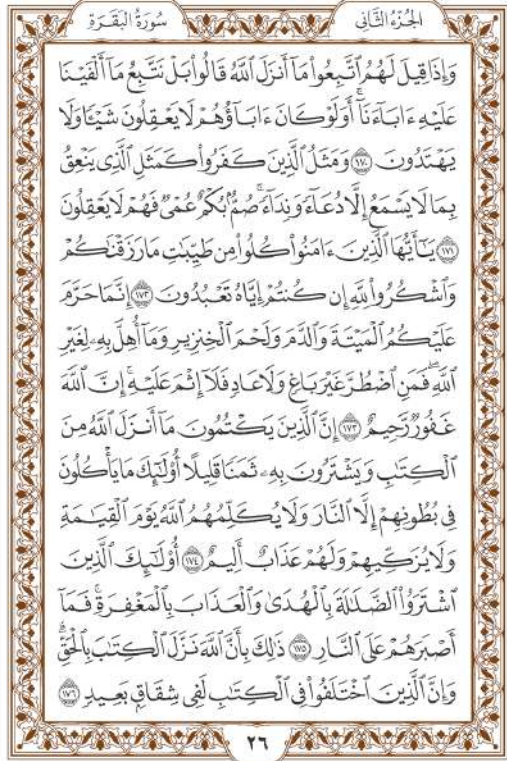 سُورَةُ الْبَقَرَةِ
الجُزْءُ الثَّانِي
وَإِذَا قِيلَ لَهُمُ ٱتَّبِعُوا۟ مَآ أَنزَلَ ٱللَّهُ قَالُوا۟ بَلْ نَتَّبِعُ مَآ أَلْفَيْنَا
عَلَيْهِ ءَابَآءَنَآۗ أَوَلَوْ كَانَ ءَابَآؤُهُمْ لَا يَعْقِلُونَ شَيْـًٔا وَلَا
يَهْتَدُونَ ١٧٠ وَمَثَلُ ٱلَّذِينَ كَفَرُوا۟ كَمَثَلِ ٱلَّذِى يَنْعِقُ
بِمَا لَا يَسْمَعُ إِلَّا دُعَآءً وَنِدَآءًۚ صُمٌّۢ بُكْمٌ عُمْىٌ فَهُمْ لَا يَعْقِلُونَ
١٧١ يَـٰٓأَيُّهَا ٱلَّذِينَ ءَامَنُوا۟ كُلُوا۟ مِن طَيِّبَـٰتِ مَا رَزَقْنَـٰكُمْ
وَٱشْكُرُوا۟ لِلَّهِ إِن كُنتُمْ إِيَّاهُ تَعْبُدُونَ ١٧٢ إِنَّمَا حَرَّمَ
عَلَيْكُمُ ٱلْمَيْتَةَ وَٱلدَّمَ وَلَحْمَ ٱلْخِنزِيرِ وَمَآ أُهِلَّ بِهِۦ لِغَيْرِ
ٱللَّهِۖ فَمَنِ ٱضْطُرَّ غَيْرَ بَاغٍ وَلَا عَادٍ فَلَآ إِثْمَ عَلَيْهِۚ إِنَّ ٱللَّهَ
غَفُورٌ رَّحِيمٌ ١٧٣ إِنَّ ٱلَّذِينَ يَكْتُمُونَ مَآ أَنزَلَ ٱللَّهُ مِنَ
ٱلْكِتَـٰبِ وَيَشْتَرُونَ بِهِۦ ثَمَنًا قَلِيلًا أُو۟لَـٰٓئِكَ مَا يَأْكُلُونَ
فِى بُطُونِهِمْ إِلَّا ٱلنَّارَ وَلَا يُكَلِّمُهُمُ ٱللَّهُ يَوْمَ ٱلْقِيَـٰمَةِ
وَلَا يُزَكِّيهِمْ وَلَهُمْ عَذَابٌ أَلِيمٌ ١٧٤ أُو۟لَـٰٓئِكَ ٱلَّذِينَ
ٱشْتَرَوُا۟ ٱلضَّلَـٰلَةَ بِٱلْهُدَىٰ وَٱلْعَذَابَ بِٱلْمَغْفِرَةِۚ فَمَآ
أَصْبَرَهُمْ عَلَى ٱلنَّارِ ١٧٥ ذَٰلِكَ بِأَنَّ ٱللَّهَ نَزَّلَ ٱلْكِتَـٰبَ بِٱلْحَقِّۗ
وَإِنَّ ٱلَّذِينَ ٱخْتَلَفُوا۟ فِى ٱلْكِتَـٰبِ لَفِى شِقَاقٍۭ بَعِيدٍ ١٧٦
٢٦